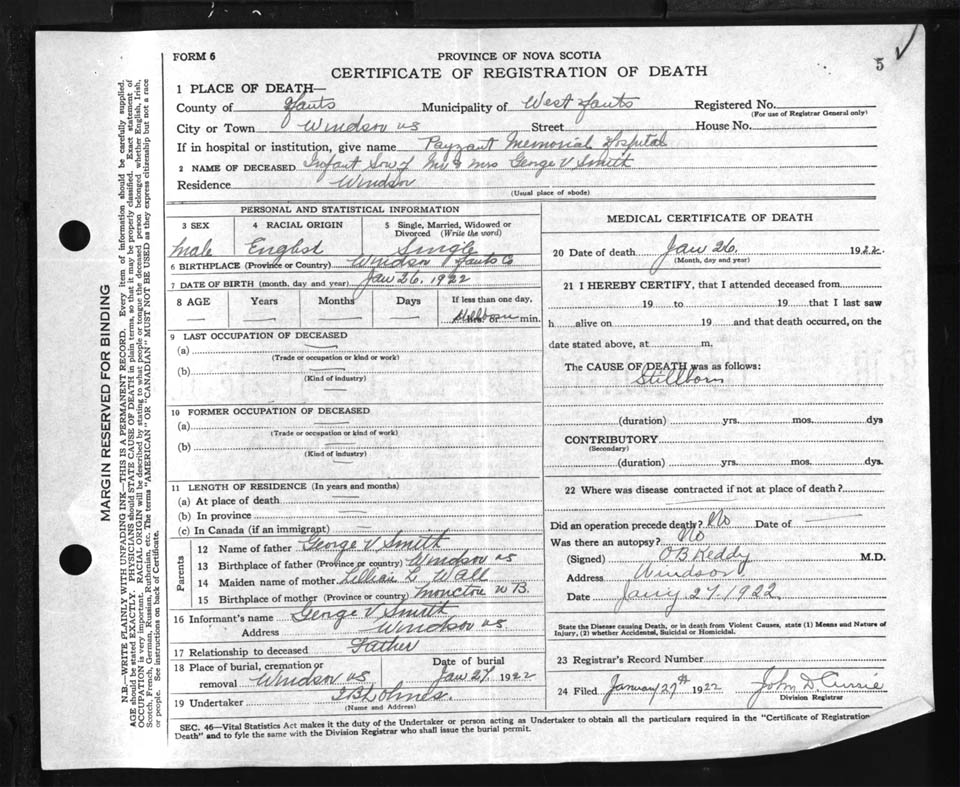 FORM 6
PROVINCE OF NOVA SCOTIA
CERTIFICATE OF REGISTRATION OF DEATH
5
1 PLACE OF DEATH—
County of Hants Municipality of West Hants Registered No.
(For use of Registrar General only)
City or Town Windsor NS Street House No.
If in hospital or institution, give name Payzant Memorial Hospital
2 NAME OF DECEASED Infant Son of Mr & Mrs George V Smith
Residence Windsor
(Usual place of abode)
PERSONAL AND STATISTICAL INFORMATION
3 SEX 4 RACIAL ORIGIN 5 Single, Married, Widowed or Divorced (Write the word)
Male English Single
6 BIRTHPLACE (Province or Country) Windsor Hants Co
7 DATE OF BIRTH (month, day and year) Jan 26, 1922
8 AGE Years Months Days If less than one day,
Stillborn hrs. or min.
9 LAST OCCUPATION OF DECEASED
(a)
(Trade or occupation or kind or work)
(b)
(Kind of industry)
10 FORMER OCCUPATION OF DECEASED
(a)
(Trade or occupation or kind of work)
(b)
(Kind of industry)
11 LENGTH OF RESIDENCE (In years and months)
(a) At place of death
(b) In province
(c) In Canada (if an immigrant)
Parents
12 Name of father George V Smith
13 Birthplace of father (Province or country) Windsor NS
14 Maiden name of mother Lillian L Wall
15 Birthplace of mother (Province or country) Moncton N B.
16 Informant's name George V Smith
Address Windsor NS.
17 Relationship to deceased Father
18 Place of burial, cremation or removal Windsor NS Date of burial Jan 27 1922
19 Undertaker
(Name and Address)
MEDICAL CERTIFICATE OF DEATH
20 Date of death Jan 26. 1922
(Month, day and year)
21 I HEREBY CERTIFY, that I attended deceased from
19 to 19 that I last saw
h alive on 19 and that death occurred, on the
date stated above, at m.
The CAUSE OF DEATH was as follows:
Stillborn
(duration) yrs. mos. dys
CONTRIBUTORY
(Secondary)
(duration) yrs. mos. dys.
22 Where was disease contracted if not at place of death?
Did an operation precede death? No Date of
Was there an autopsy? No
(Signed) O B Keddy M.D.
Address Windsor
Date Jany 27 1922
State the Disease causing Death, or in death from Violent Causes, state (1) Means and Nature of
Injury, (2) whether Accidental, Suicidal or Homicidal.
23 Registrar's Record Number
24 Filed January 27th 1922 John D. Currie
Division Registrar
SEC. 46—Vital Statistics Act makes it the duty of the Undertaker or person acting as Undertaker to obtain all the particulars required in the "Certificate of Registration
Death" and to fyle the same with the Division Registrar who shall issue the burial permit.
MARGIN RESERVED FOR BINDING
N.B.—WRITE PLAINLY WITH UNFADING INK—THIS IS A PERMANENT RECORD. Every item of information should be carefully supplied.
AGE should be stated EXACTLY. PHYSICIANS should STATE CAUSE OF DEATH in plain terms, so that it may be properly classified. Exact statement of
OCCUPATION is very important. RACIAL ORIGIN will be described by stating to what people or tongue the deceased person belonged whether English, Irish,
Scotch, French, German, Russian, Ruthenian, etc. The terms "AMERICAN" OR "CANADIAN" MUST NOT BE USED as they express citizenship but not a race
or people. See instructions on back of Certificate.